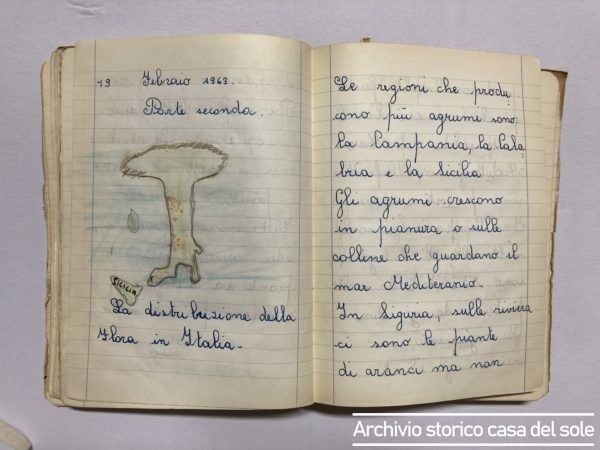 19 Febraio 1963.
Parte seconda.
SICILIA
La distribuzione della
Flora in Italia.
Le regioni che produ
cono più agrumi sono:
la Campania, la Cala
bria e la Sicilia
Gli agrumi crescono
in pianura o sulle
colline che guardano il
mar Mediteranio.
In Liguria, sulle riviera
ci sono le piante
di aranci ma non
Archivio storico casa del sole